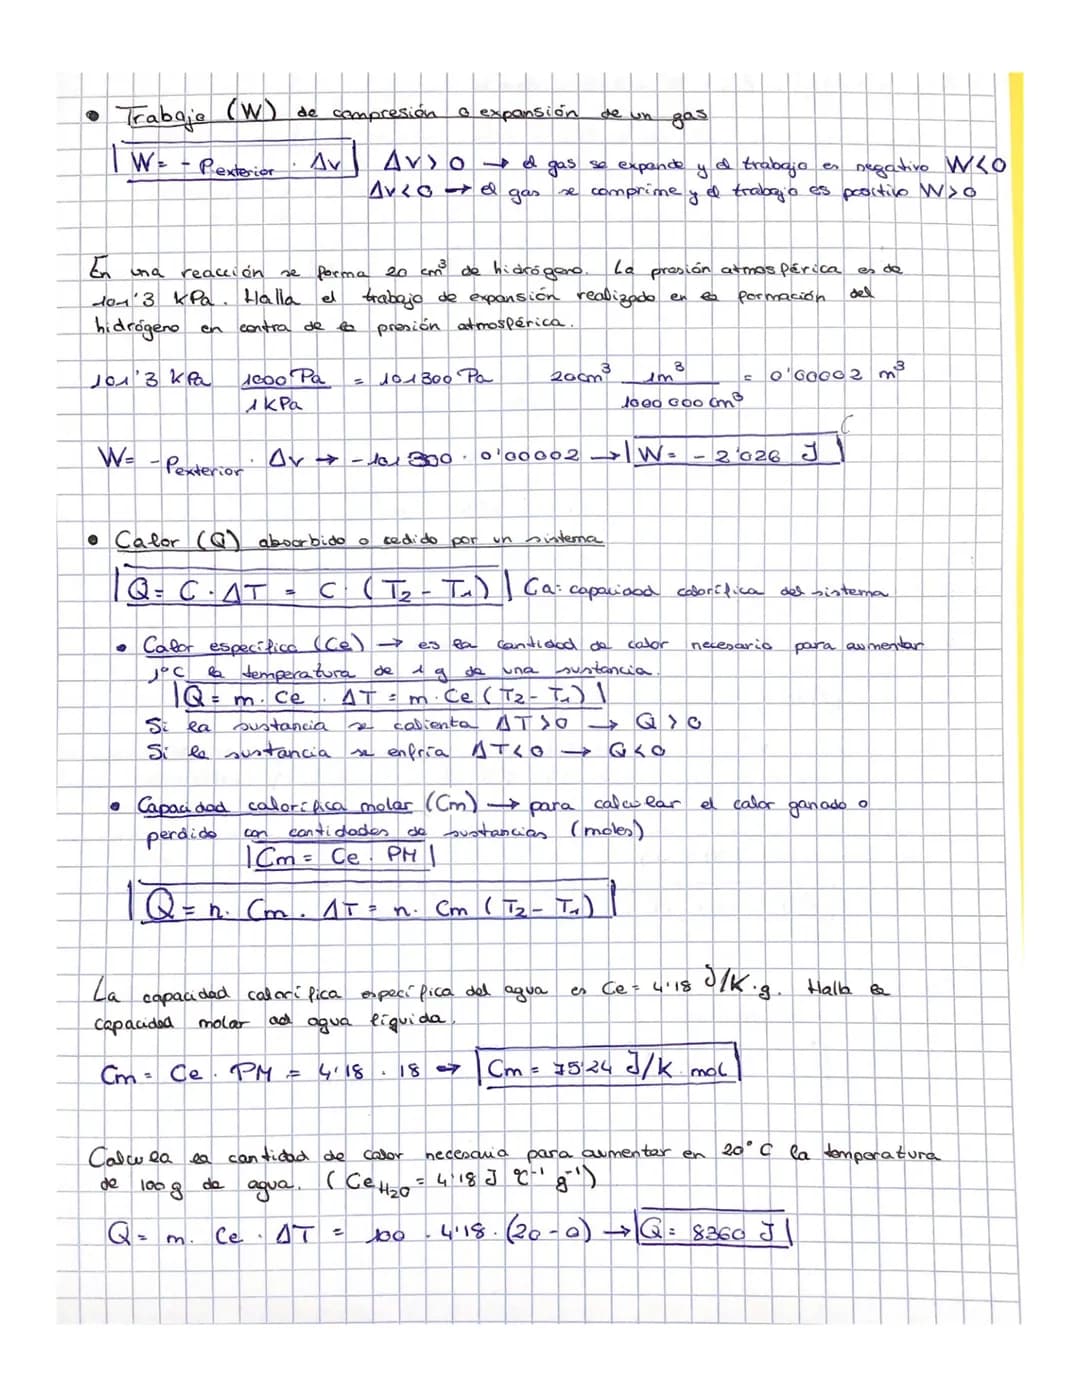 • Trabajo (W) de compresión o expansión de un gas
W= - Pexterior . ΔV ΔV>0 → el gas se expande y el trabajo es negativo W<0
ΔV<0 → el gas se comprime y el trabajo es positivo W>0
En una reacción se forma 20 cm³ de hidrógeno. La presión atmosférica es de
101'3 kPa. Halla el trabajo de expansión realizado en la formación del
hidrógeno en contra de la presión atmosférica.
101'3 kPa 1000 Pa / 1 kPa = 101300 Pa 20cm³ 1m³ / 1000 000 cm³ = 0'00002 m³
W= - Pexterior . ΔV → -101 300 . 0'00002 → W= - 2'026 J
• Calor (Q) absorbido o cedido por un sistema
Q= C . ΔT = C . (T₂ - T₁) Ca: capacidad calorífica del sistema
• Calor específico (Ce) → es la cantidad de calor necesario para aumentar
1°C la temperatura de 1 g de una sustancia.
Q= m. Ce . ΔT = m. Ce (T₂- T₁)
Si la sustancia se calienta ΔT>0 → Q>0
Si la sustancia se enfría ΔT<0 → Q<0
• Capacidad calorífica molar (Cm) → para calcular el calor ganado o
perdido con cantidades de sustancias (moles)
Cm = Ce . PM
Q= n. Cm . ΔT = n. Cm (T₂- T₁)
La capacidad calorífica específica del agua es Ce= 4'18 J/K·g. Halla la
capacidad molar del agua líquida.
Cm = Ce . PM = 4'18 . 18 → Cm = 75'24 J/K mol
Calcula la cantidad de calor necesaria para aumentar en 20°C la temperatura
de 100g de agua. (Ce H₂O = 4'18 J °C⁻¹ g⁻¹)
Q= m. Ce . ΔT = 100 . 4'18 . (20-0) → Q= 8360 J